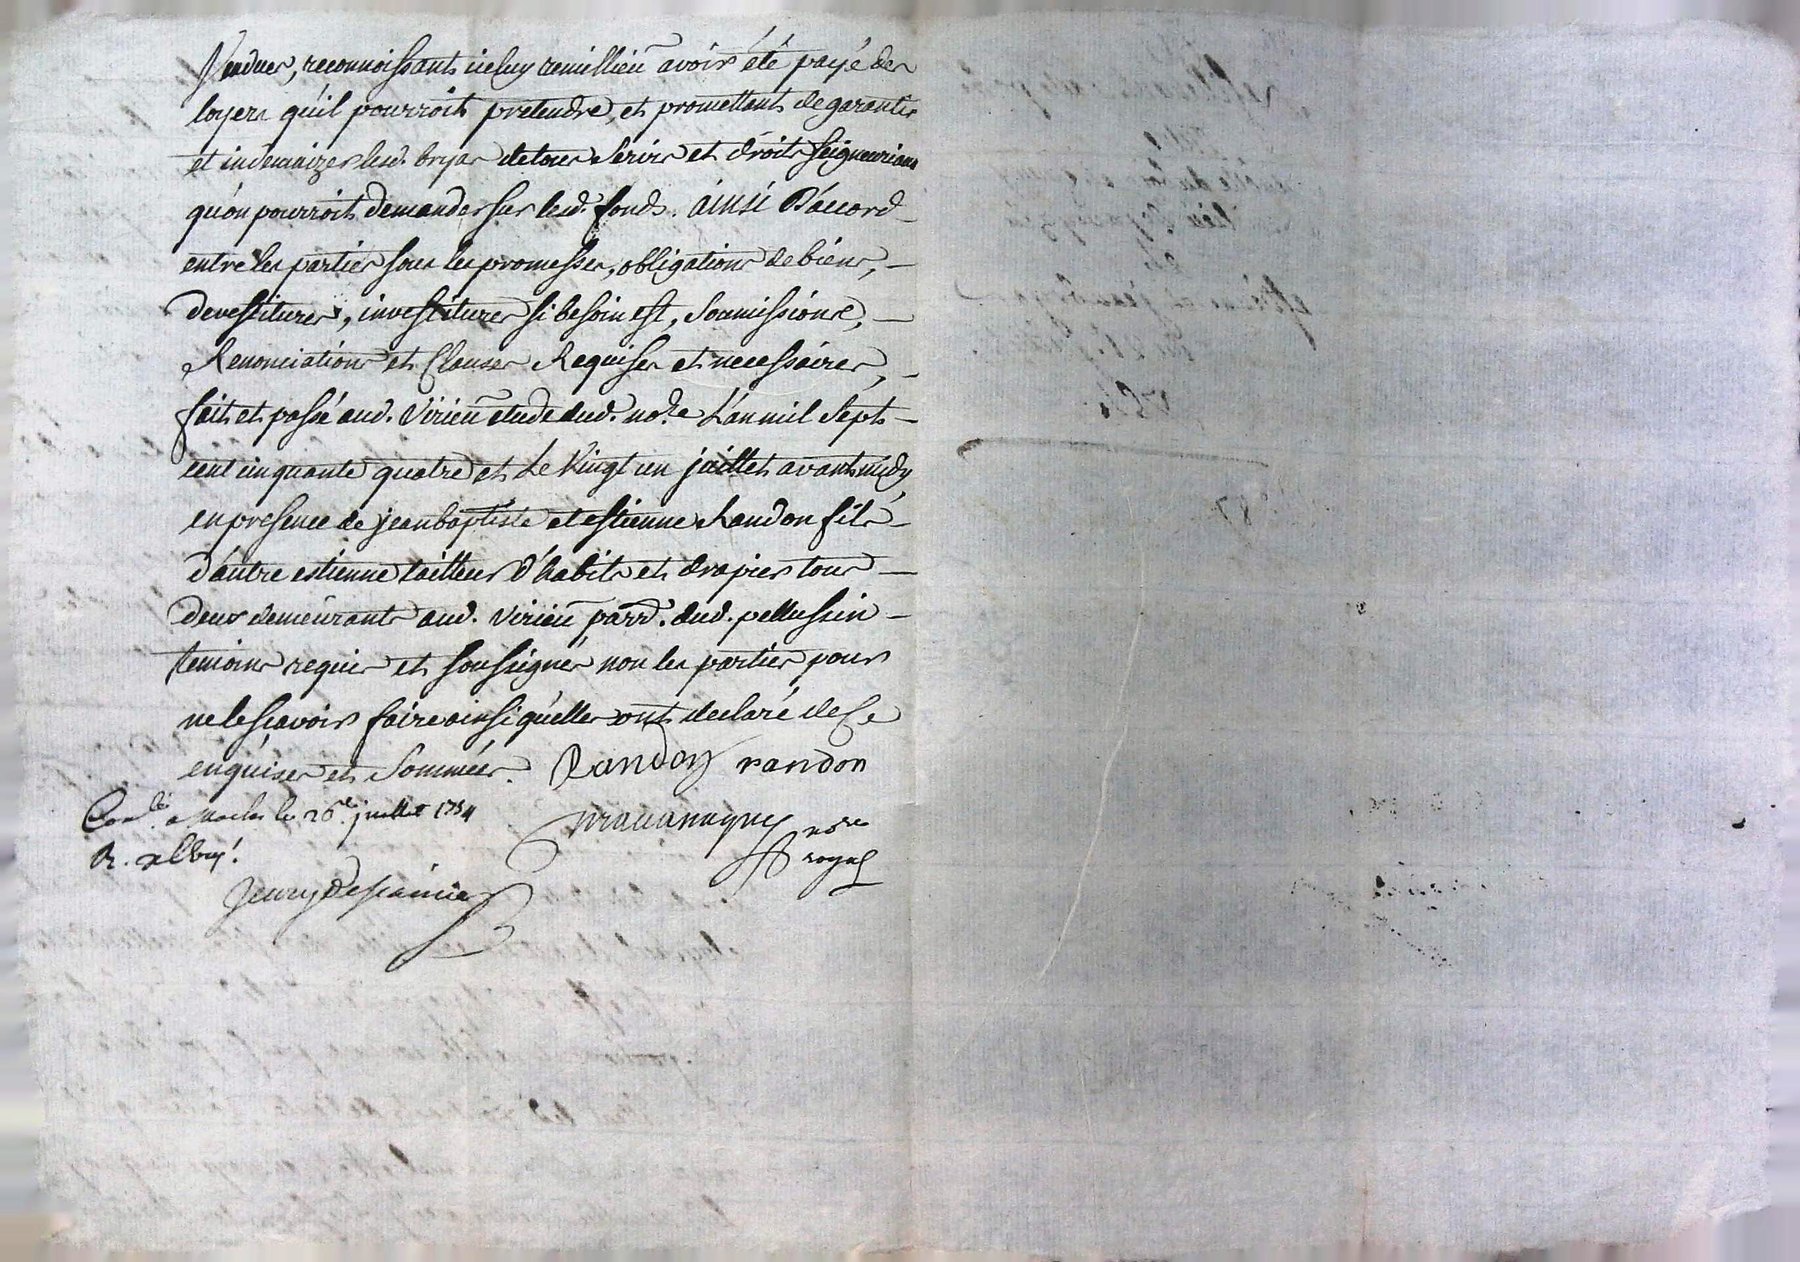 Vendues, reconnoissants iceluy remillieu avoir été payé des
loyers qu'il pourroit pretendre, et promettant de garantir
et indemnizer lesd. bryas de tous servis et droits seigneuriaux
qu'on pourroit demander sur lesd. fonds. ainsi d'accord
entre les parties sous les promesses, obligations de biens,
devestitures, investitures si besoin est, soumissions,
Renonciations et Clauses Requises et necessaires,
fait et passé aud. Virieu etude dud. nore. L'an mil sept
cent cinquante quatre et le vingt un juillet avant midy
en presence de jean baptiste et estienne Randon fils
d'autre estienne tailleur d'habits et drapier tous
deux demeurants aud. Virieu parr. dud. pellussin
temoins requis et soussignés non les parties pour
ne le sçavoir faire ainsi qu'elles ont declaré de ce
enquises et sommées. Randon randon
a Maclas le 26e juillet 1754
nore
royal